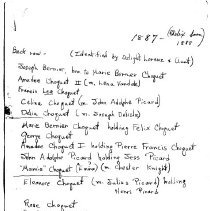 1887-
(Delix born)
1888
Back row - (Identified by Delight Lorenz & Aunt)
Joseph Bernier, bro to Marie Bernier Choquet
Amadee Choquet II (m. Lena Vandale)
Francis Lee Choquet,
Celina Choquet (m. John Adolphe Picard)
Delia Choquet (m. Joseph Delisle)
Marie Bernier Choquet holding Felix Choquet
George Choquet
Amadee Choquet I holding Pierre Francis Choquet
John Adolphe Picard holding Jess Picard
"Mamie" Choquet (Emma) (m. Chester Knight)
Eleanore Choquet (m. Julius Picard) holding
Henri Picard
Rose Choquet